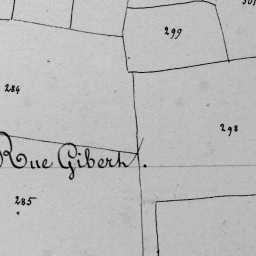 299
284
298
Rue Giberh.
285